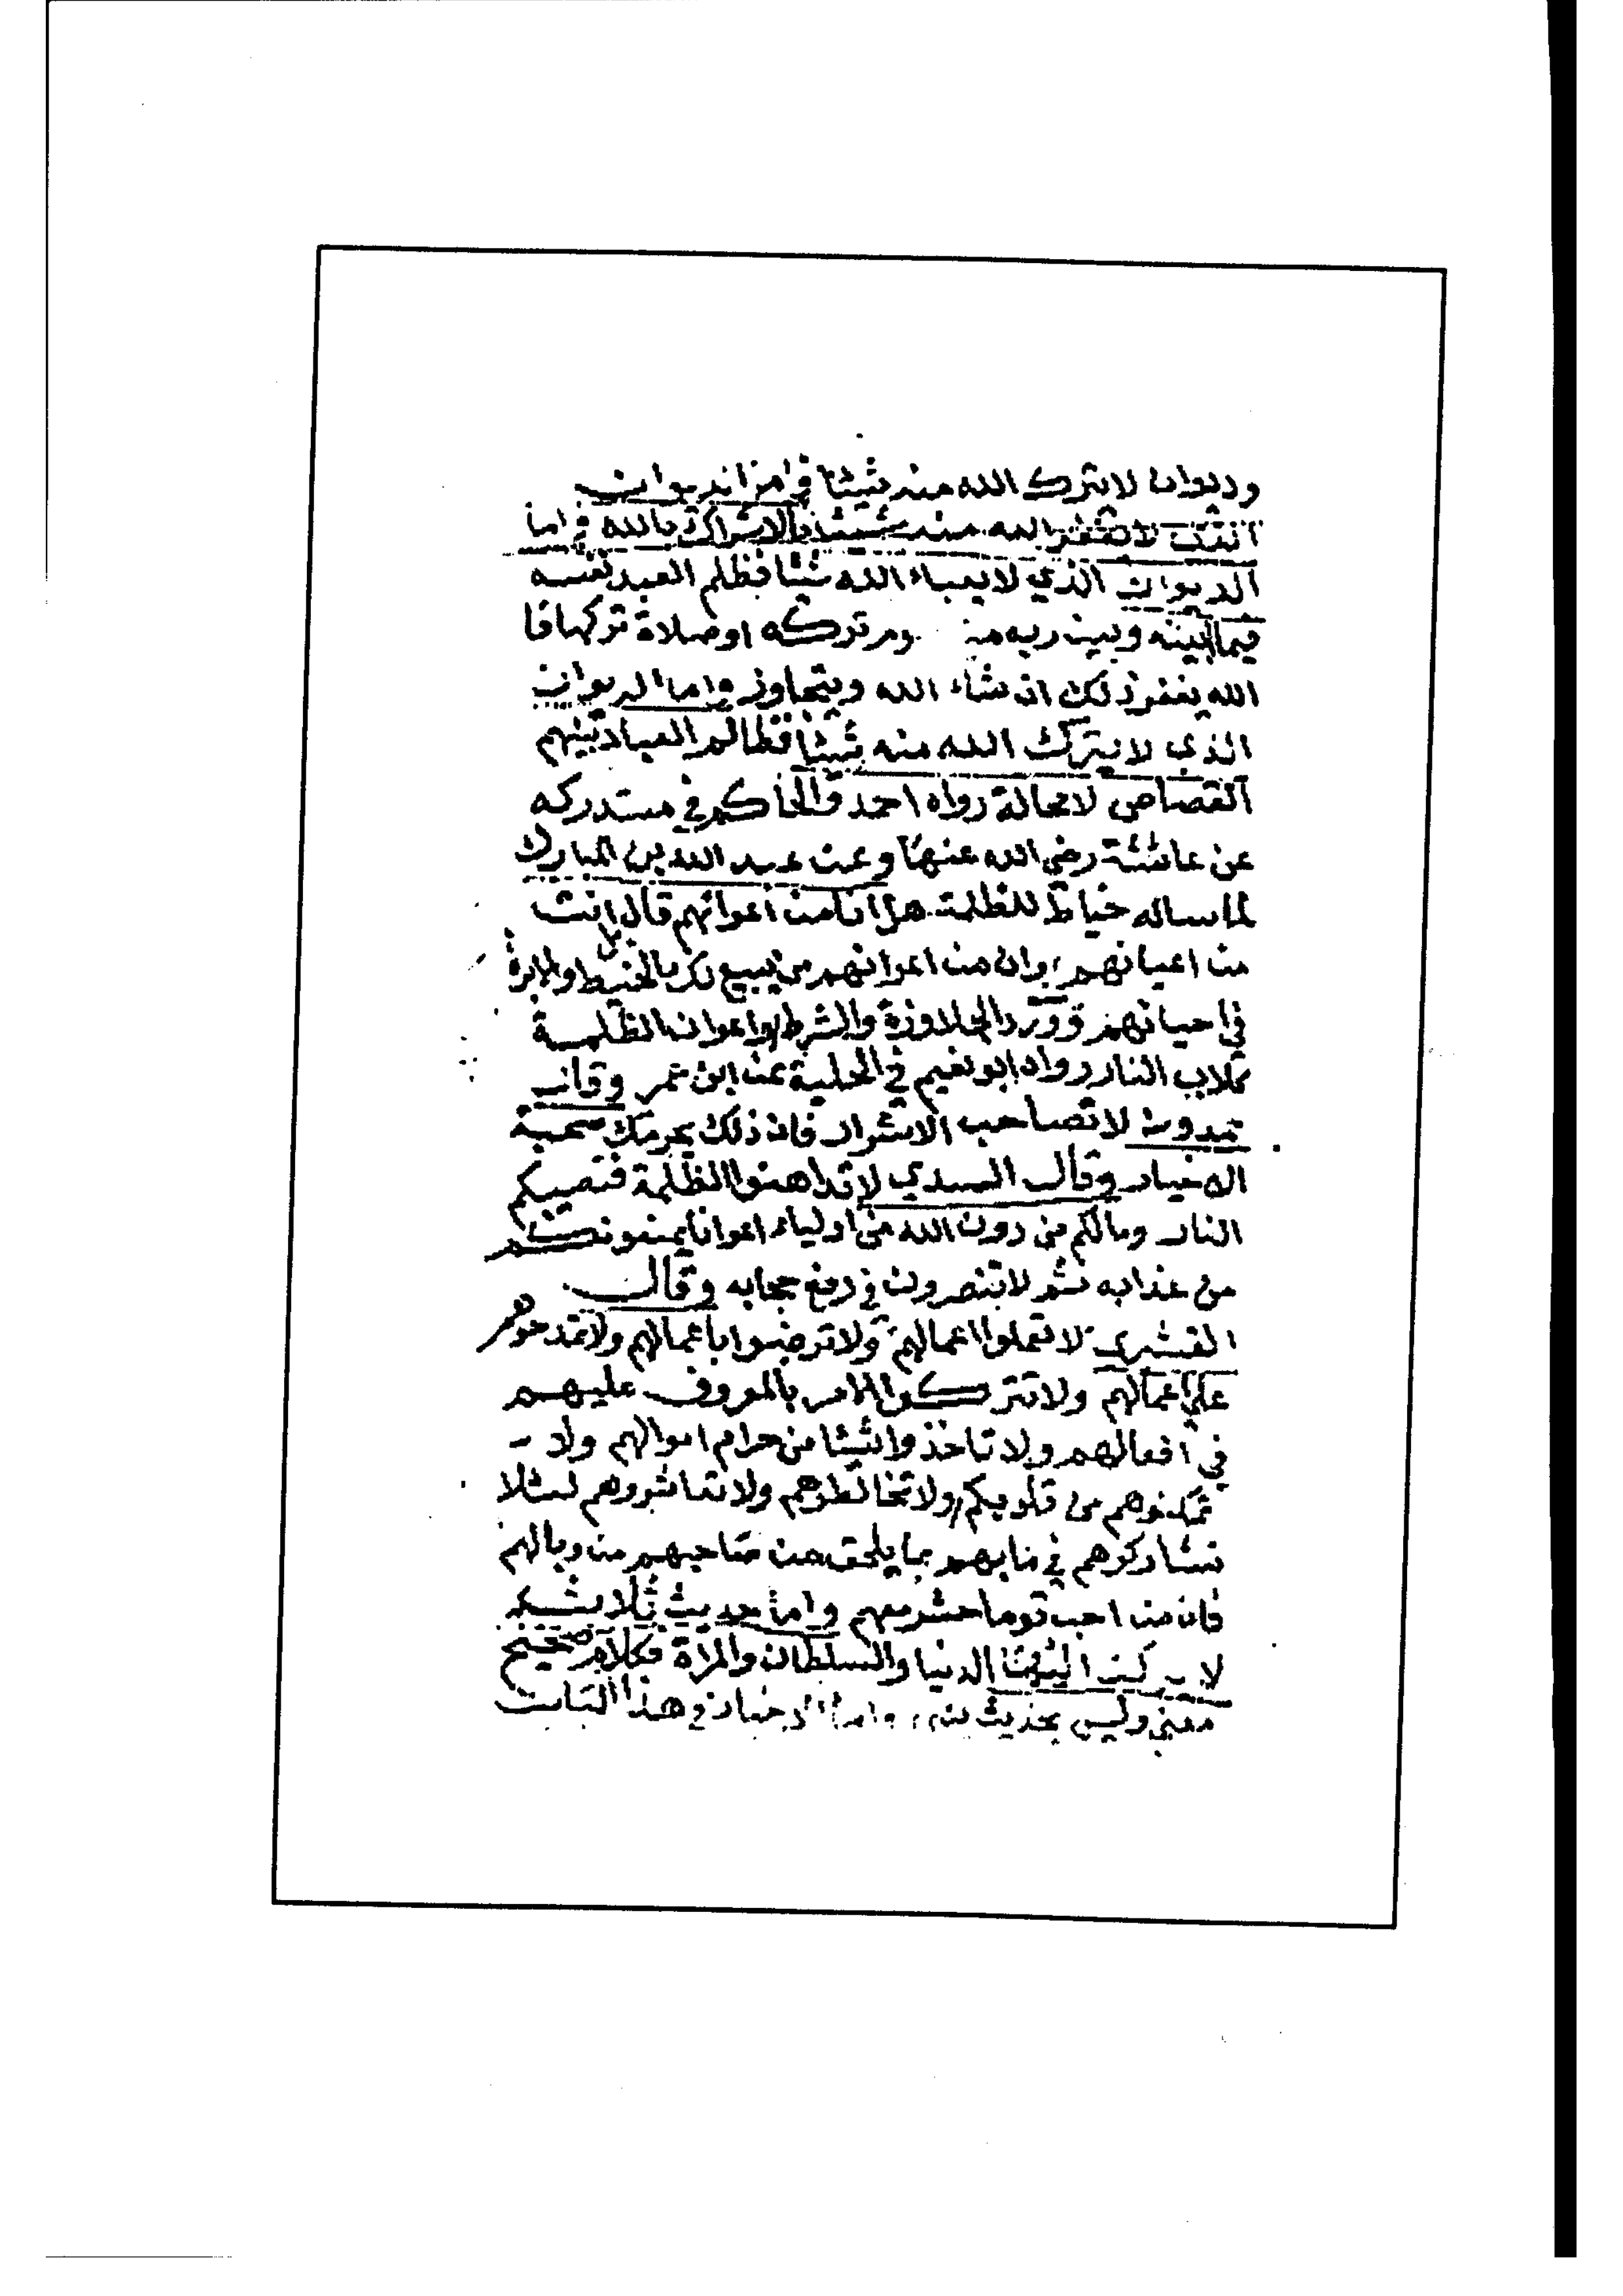 وديوانا لا يترك الله منه شيئا فاما الديوان
الذي لا يغفر الله منه شيئا فالاشراك بالله واما
الديوان الذي لا يعباء الله شيئا فظلم العبد نفسه
فيما بينه وبين ربه من تركه او صلاة تركها فا
الله يغفر ذلك ان شاء الله ويتجاوز واما الديوان
الذي لا يترك الله منه شيئا فظالم العباد بينهم
القصاص لا محالة رواه احمد والحاكم في مستدركه
عن عائشة رضي الله عنها وعن عبد الله بن المبارك
لما ساله خياط للظلمة هل انا من اعوانهم قال انت
من اعيانهم وان من اعوانهم من يبيع لك الخيط والابرة
في احيانهم وورد الجلاوزة والشرط واعوان الظلمة
كلاب النار رواه ابو نعيم في الحلية عن ابن عمر وقال
حمدون لا تصاحب الاشرار فان ذلك يحرمك صحبة
الاخيار وقال السدي لا تداهنوا الظلمة فتصيبكم
النار وما لكم من دون الله من اولياء اعوانا يمنعونكم
من عذابه ثم لا تنصرون في رفع حجابه وقال
القشيري لا تعملوا اعمالهم ولا ترضوا باعمالهم ولا تمدحوهم
على اعمالهم ولا تتركوا الامر بالمعروف عليهم
في افعالهم ولا تاخذوا شيئا من حرام اموالهم ولا
تمكنوهم من قلوبكم ولا تخالطوهم ولا تعاشروهم لئلا
تشاركوهم في بما يلحق من صاحبهم من وبالهم
فان من احب قوما حشر معهم واما حديث ثلاثة
لا يركن اليها الدنيا والسلطان والمراة فكلام صحيح
معنى وليس بحديث واما الاخبار في هذا الباب